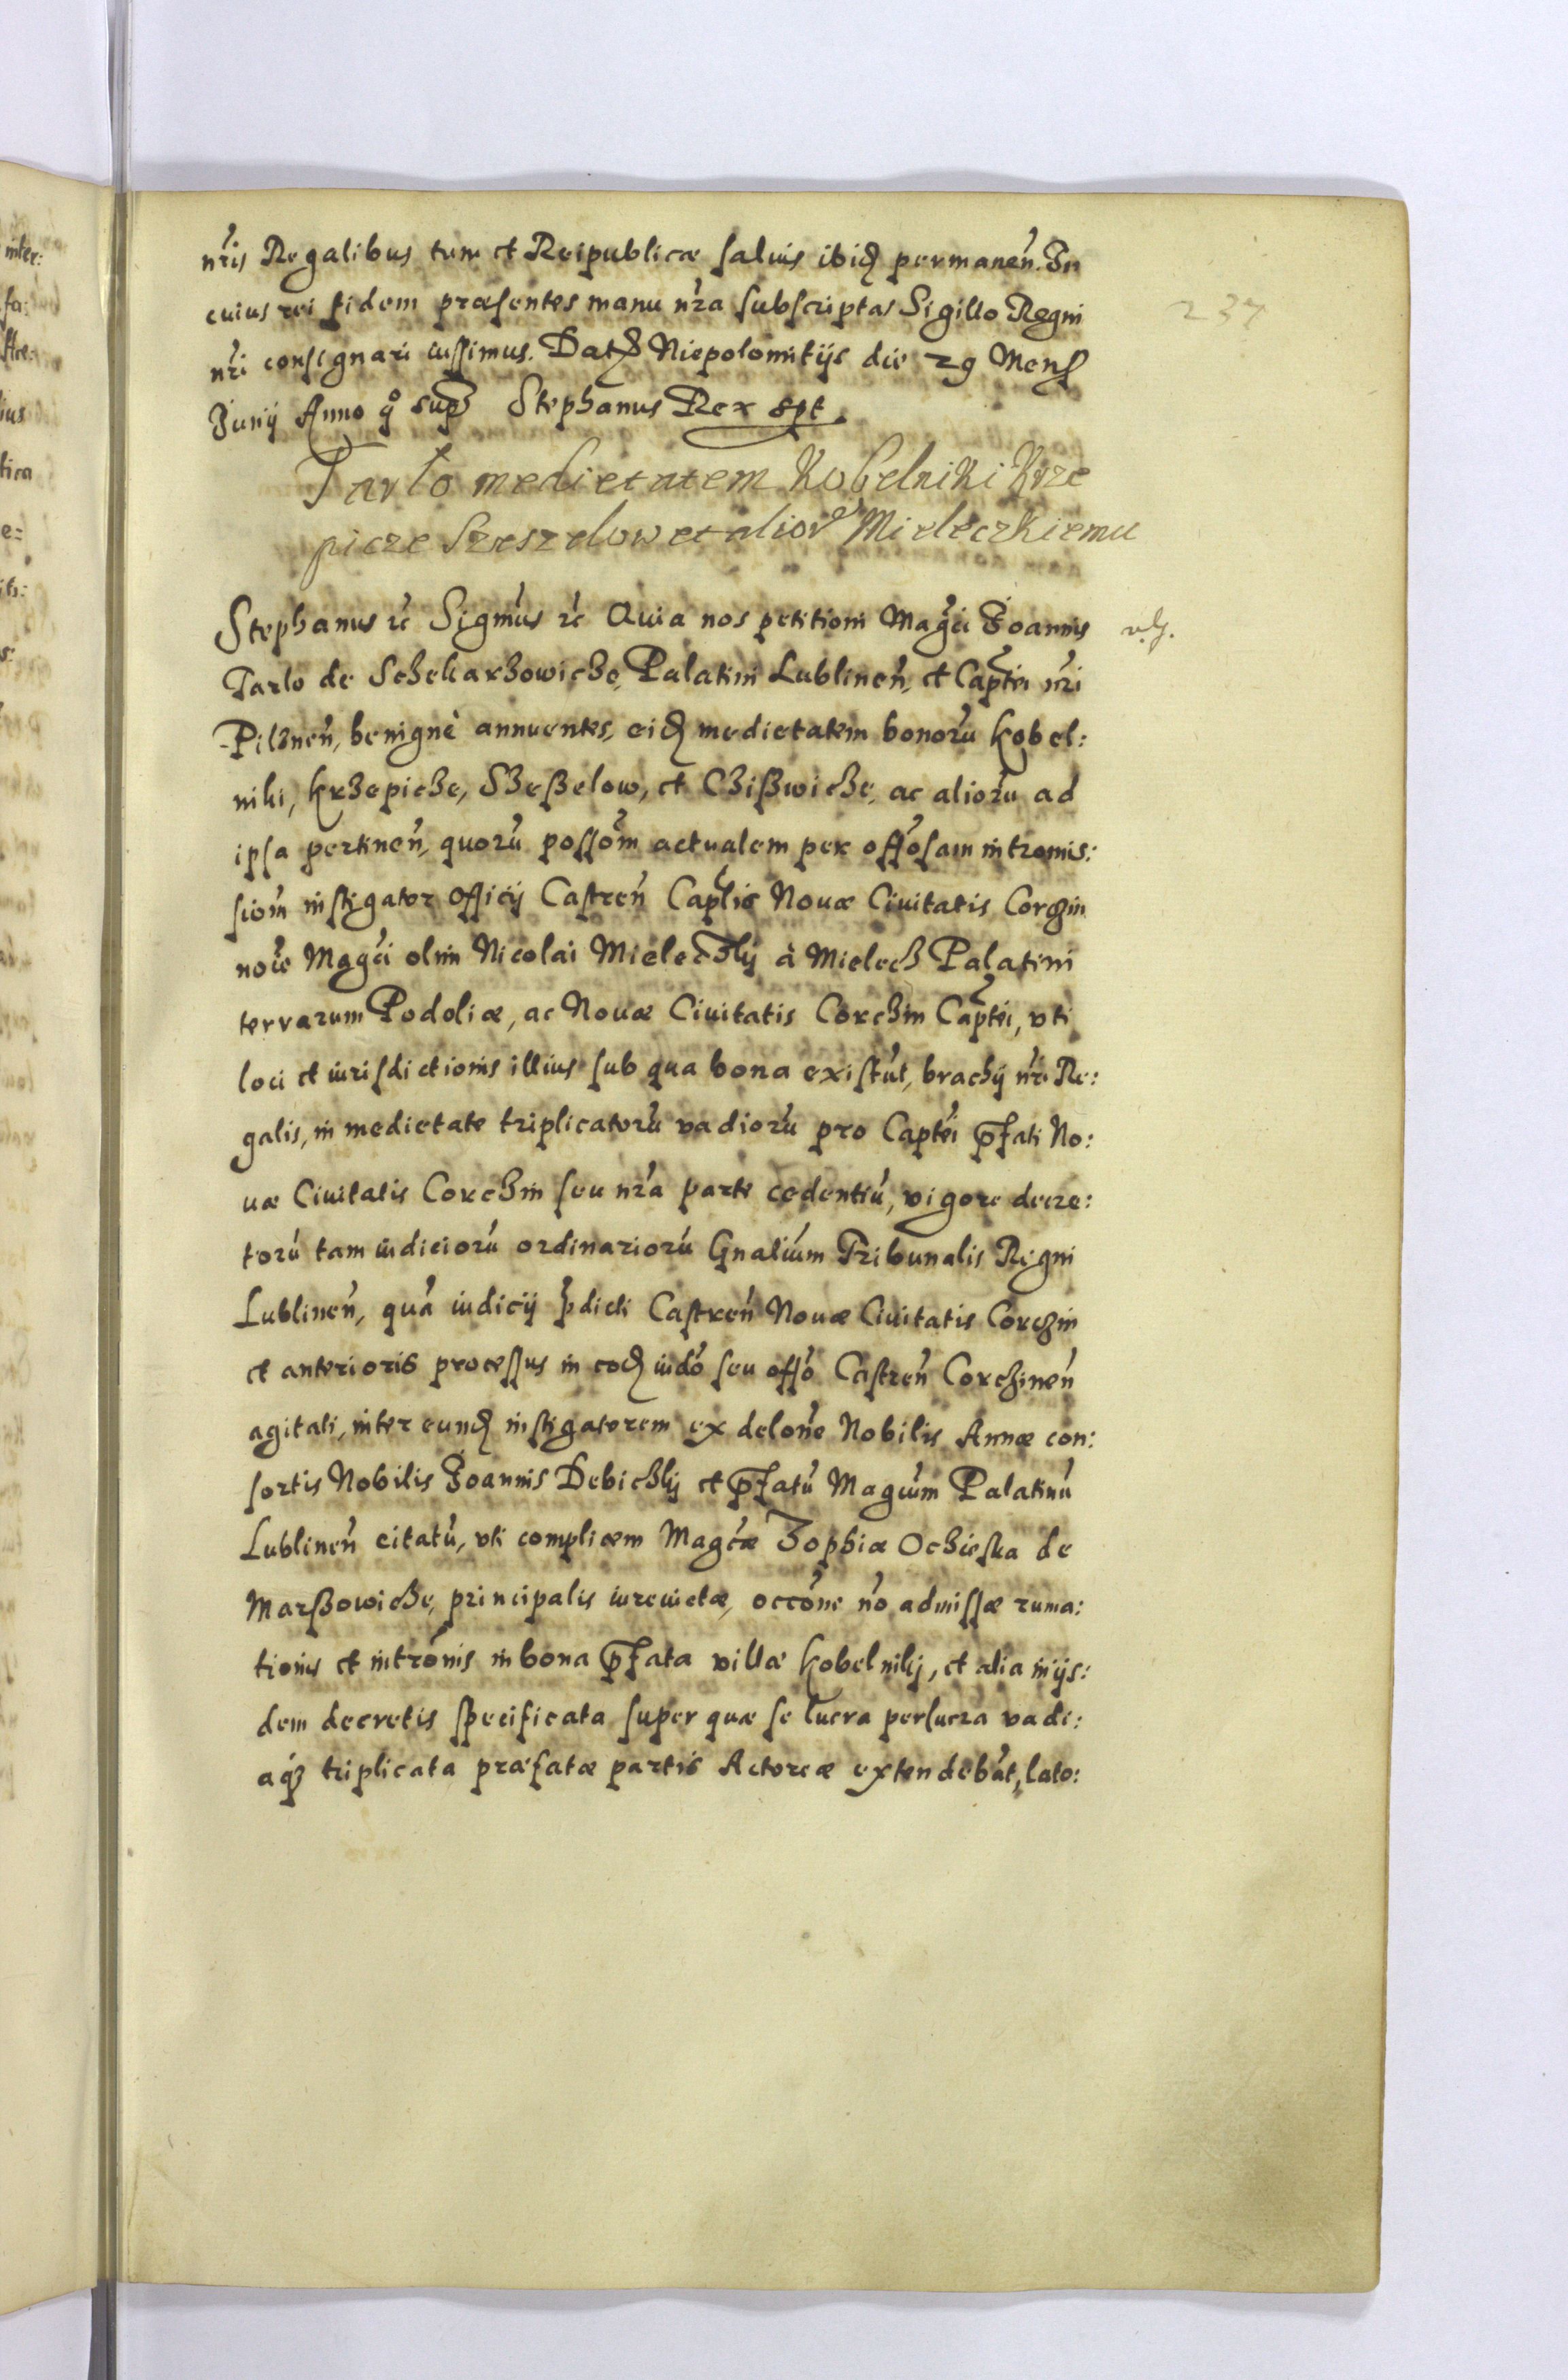 nr̃is Regalibus tum et Reipublicæ saluis ibid permanen̄. In
cuius rei fidem præsentes manu nr̃a subscriptas Sigillo Regni
nr̃i consignari iussimus. Dat Niepolomitijs die 29 Mens
Junij Anno q° sup Stephanus Rex sp̄t
Tarlo medietatem Kobelniki Krze
picze Szeszelow et alior Mieleczkiemu
237
Stephanus rc̄ Sigm̄us rc̄ Quia nos petitioni Mag̃ci Joannis
Tarlo de Schekarzowicze, Palatini Lublinen̄, et Cap̃tei nr̃i
Pilznen̄, benignè annuentes, eid medietatem bonorū Kobel:
niki, Krzepicze, Szeßelow, et Czißwicze, ac aliorū ad
ipsa pertinen̄, quorū possōm actualem per offōsam intromis:
siom̄ instigator officij Castren̄ Cap̃lis Nouæ Ciuitatis Corczin
noīe Mag̃ci olim Nicolai Mieleczkij à Mielecz Palatini
terrarum Podoliæ, ac Nouæ Ciuitatis Corczin Cap̃tei, vti
loci et iurisdictionis illius sub qua bona existūt, brachij nr̃i Re:
galis, in medietate triplicatorū vadiorū pro Cap̃tei p̄fati No:
uæ Ciuitatis Corczin seu nr̃a parte cedentiū, vigore decre:
torū tam iudiciorū ordinariorū Gnaliūm Tribunalis Regni
Lublinen̄, quā iudicij p̄dicti Castren̄ Nouæ Ciuitatis Corczin
et anterioris processus in eod iud̄o seu offō Castren̄ Corczinen̄
agitati, inter eund instigatorem ex delōne Nobilis Annæ con:
sortis Nobilis Joannis Debiczkij et p̄fatū Mag̃cum Palatinū
Lublinen̄ citatū, vti complicem Mag̃cæ Zophiæ Oczieska de
Marßowicze, principalis iureuictæ, occōne nō admissæ ruma:
tionis et intrōnis in bona p̄fata villæ Kobelnikij, et alia in ijs:
dem decretis specificata super quæ se lucra perlucra vadi:
aq triplicata præfatæ partis Actoreæ extendebāt, lato: